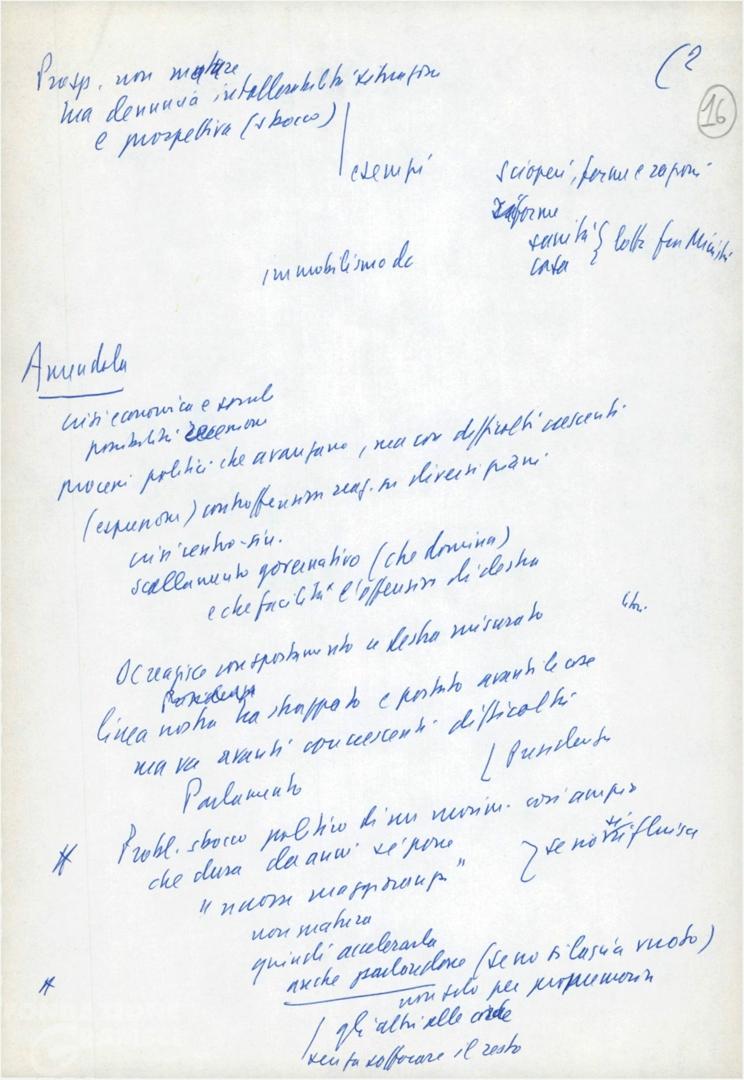 (2
16
Prosp. non mature
ma denuncia intollerabilità situazione
e prospettiva (sbocco)
esempi
scioperi, forme e ragioni
riforme
sanità } lotta fra Ministri
casa
immobilismo dc
Amendola
crisi economica e sociale
possibilità recessione
processi politici che avanzano, ma con difficoltà crescenti
(espansione) controffensiva reaz. su diversi piani
crisi centro-sin.
scollamento governativo (che domina)
e che facilita l'offensiva di destra
DC reagisce con spostamento a destra misurato
Presidenza
linea nostra ha strappato e portato avanti le cose
ma va avanti con crescenti difficoltà
Parlamento
( Presidenza
* Probl. sbocco politico di un movim. così ampio
che dura da anni si pone
} se no si rifluisce
"nuova maggioranza"
non matura
quindi accelerarla
* anche parlandone (se no si lascia vuoto)
non solo per propaganda
gli altri alle corde
senza soffocare il resto